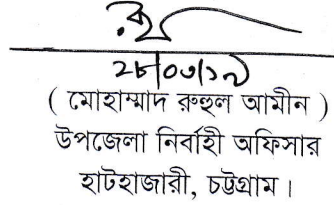 ২৮|০৩|১৯
( মোহাম্মাদ রুহুল আমীন )
উপজেলা নির্বাহী অফিসার
হাটহাজারী, চট্টগ্রাম।